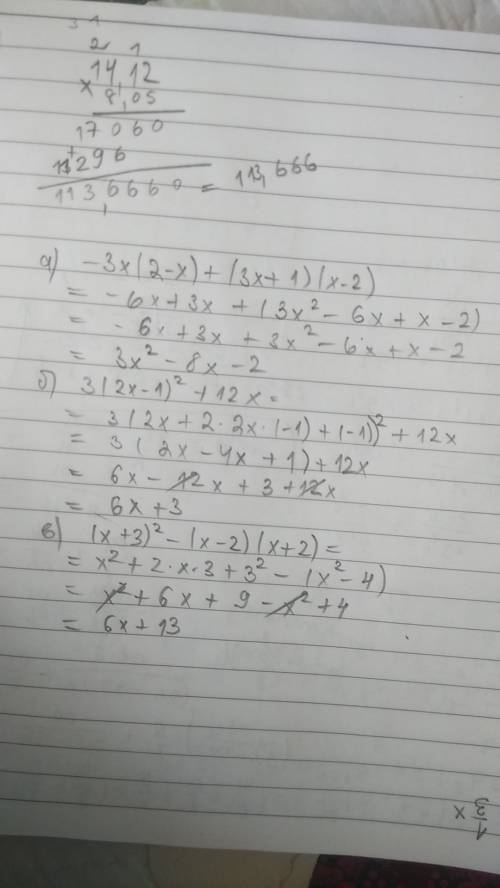 3 1
2 1
14,12
× 8,05
17060
+
11296
1136660 = 113,666
а) -3x(2-x)+(3x+1)(x-2)
= -6x+3x+(3x²-6x+x-2)
= -6x+3x+3x²-6x+x-2
= 3x²-8x-2
б) 3(2x-1)²+12x=
= 3(2x+2·2x·(-1)+(-1))²+12x
= 3(2x-4x+1)+12x
= 6x-12x+3+12x
= 6x+3
в) (x+3)²-(x-2)(x+2)=
= x²+2·x·3+3²-(x²-4)
= x²+6x+9-x²+4
= 6x+13
1/3 x